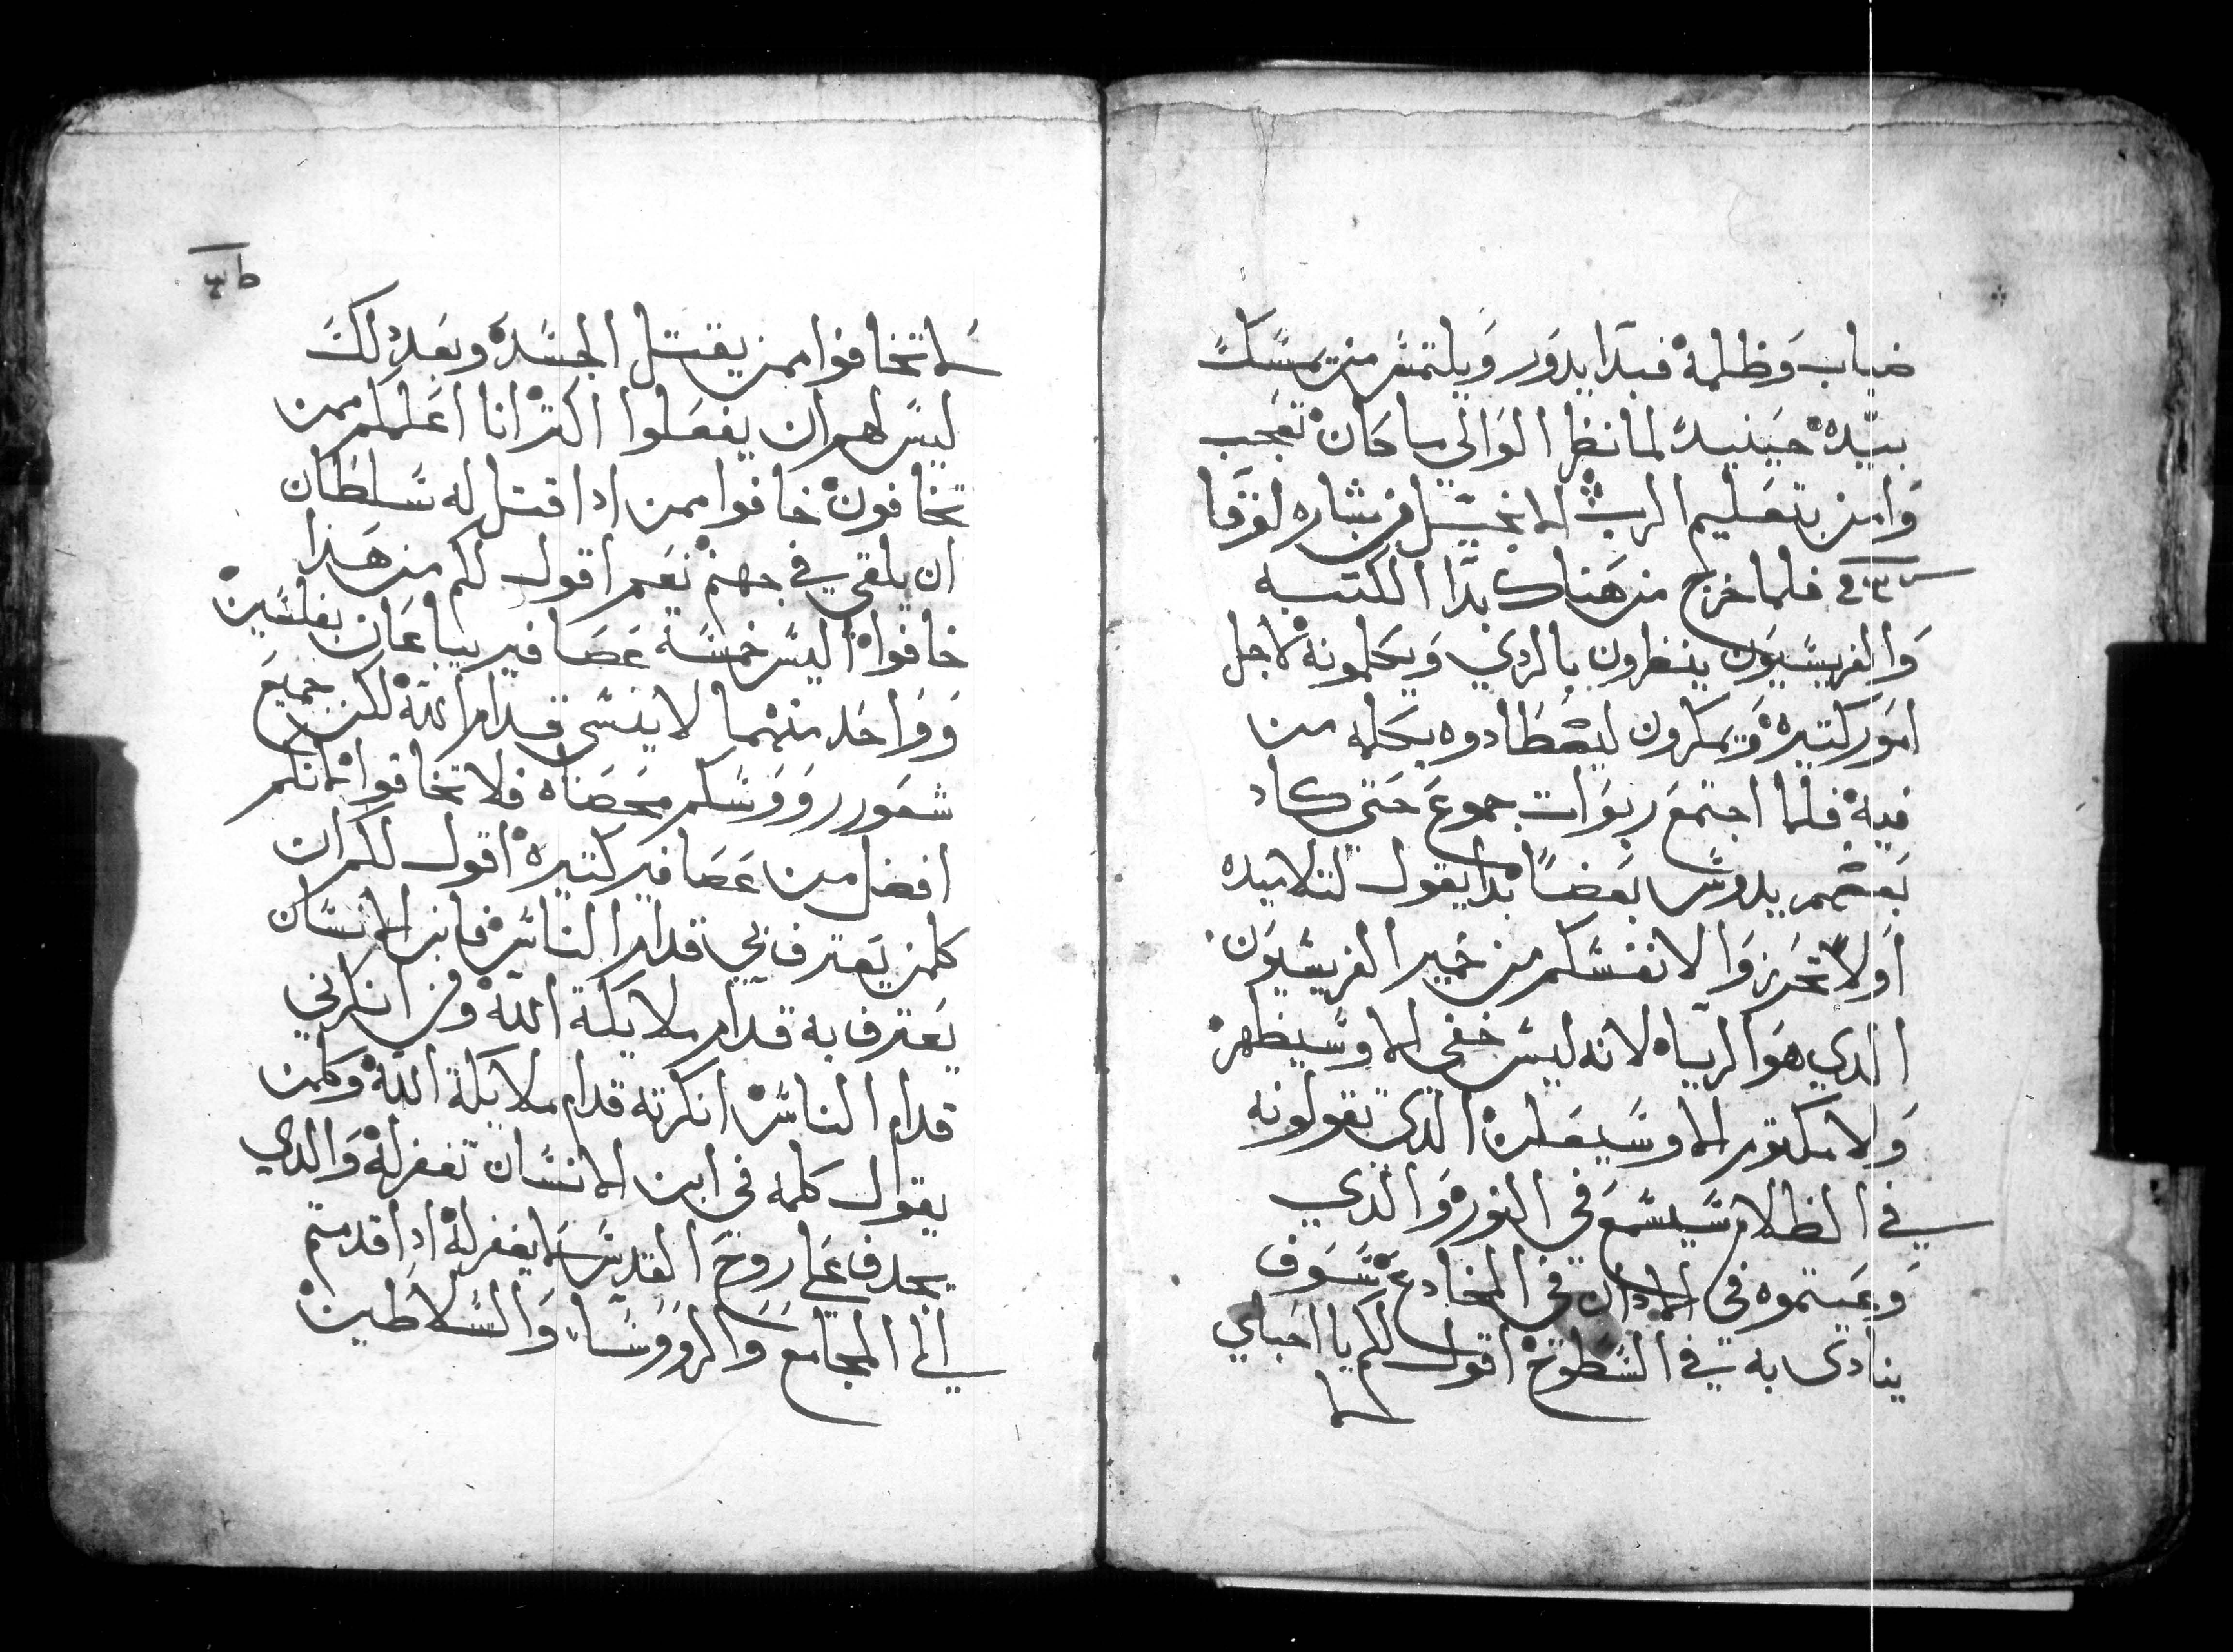 ضباب وظلمة فبدا يدور ويلتمس من يمسك
بيده حينيد لما نظر الوالي ما كان تعجب
وامن بتعليم الرب الانجيل من بشاره لوقا
فلما خرج من هناك بدا الكتبه
والفريسيون ينظرون بالردي ويكلمونه لاجل
امور كتيره ويمكرون ليصطادوه بكلمه من
فيه فلما اجتمع ربوات جموع حتي كاد
بعضهم يدوس بعضا بدا يقول لتلاميده
اولا تحرزوا لانفسكم من خمير الفريسيون
الدي هو الرياه لانه ليس خفي الا وسيظهر
ولا مكتوم الا وسيعلن الدي تقولونه
في الظلام سيسمع في النور والدي
وعيتموه في الادان في المخادع سوف
ينادى به في السطوح اقول لكم يا احباي
لا
ط
لا تخافوا ممن يقتل الجسد وبعد دلك
ليس لهم ان يفعلوا اكتر انا اعلمكم ممن
تخافون خافوا ممن ادا قتل له سلطان
ان يلقي في جهنم نعم اقول لكم من هدا
خافوا اليس خمسة عصافير يباعان بفلسين
وواحد منهما لا ينسى قدام الله لكن جميع
شعور رووسكم محصاه فلا تخافوا لانكم
افضل من عصافير كتيره اقول لكم ان
كلمن يعترف بي قدام الناس فابن الانسان
يعترف به قدام ملايكة الله ومن انكرني
قدام الناس انكرته قدام ملايكة الله وكلمن
يقول كلمه في ابن الانسان تغفر له والدي
يجدف على روح القدس لا يغفر له ادا قدمتم
الي المجامع والرووسا والسلاطين